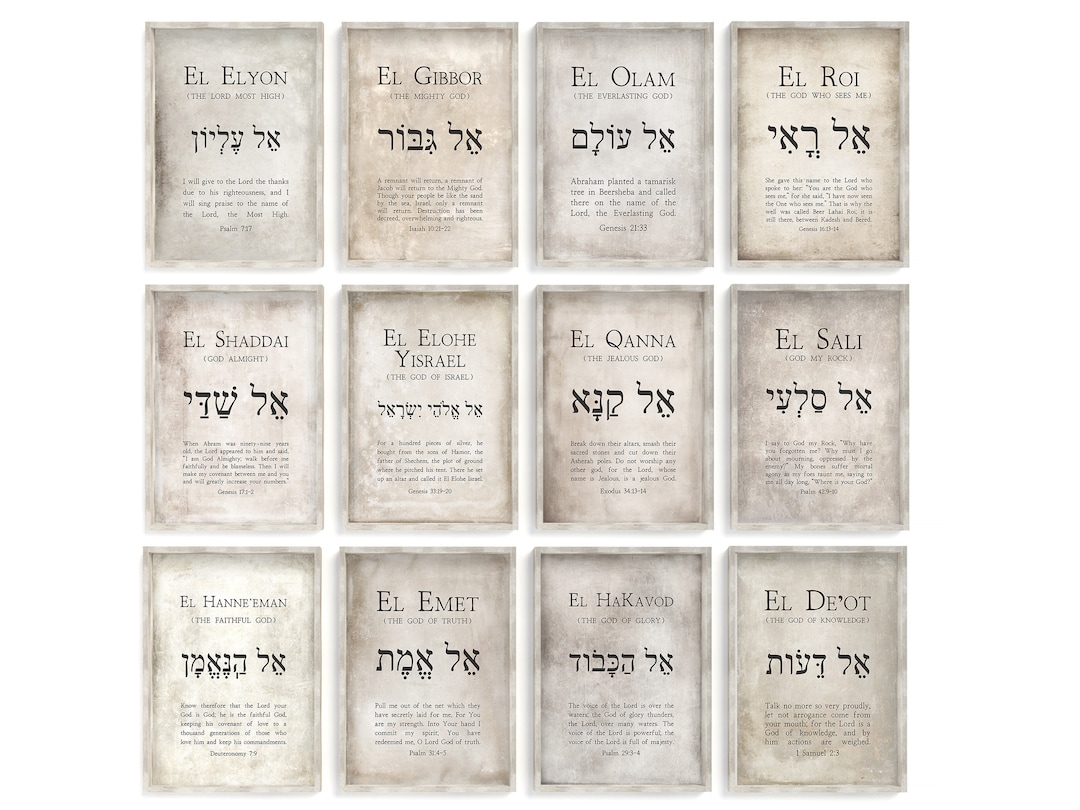 EL ELYON
(THE LORD MOST HIGH)
אֵל עֶלְיוֹן
I will give to the Lord the thanks
due to his righteousness, and I
will sing praise to the name of
the Lord, the Most High.
Psalm 7:17
EL GIBBOR
(THE MIGHTY GOD)
אֵל גִּבּוֹר
A remnant will return, a remnant of
Jacob will return to the Mighty God.
Though your people be like the sand
by the sea, Israel, only a remnant
will return. Destruction has been
decreed, overwhelming and righteous.
Isaiah 10:21-22
EL OLAM
(THE EVERLASTING GOD)
אֵל עוֹלָם
Abraham planted a tamarisk
tree in Beersheba and called
there on the name of the
Lord, the Everlasting God.
Genesis 21:33
EL ROI
(THE GOD WHO SEES ME)
אֵל רֳאִי
She gave this name to the Lord who
spoke to her: "You are the God who
sees me," for she said, "I have now seen
the One who sees me." That is why the
well was called Beer Lahai Roi; it is
still there, between Kadesh and Bered.
Genesis 16:13-14
EL SHADDAI
(GOD ALMIGHT)
אֵל שַׁדַּי
When Abram was ninety-nine years
old, the Lord appeared to him and said,
"I am God Almighty; walk before me
faithfully and be blameless. Then I will
make my covenant between me and you
and will greatly increase your numbers."
Genesis 17:1-2
EL ELOHE
YISRAEL
(THE GOD OF ISRAEL)
אֵל אֱלֹהֵי יִשְׂרָאֵל
For a hundred pieces of silver, he
bought from the sons of Hamor, the
father of Shechem, the plot of ground
where he pitched his tent. There he set
up an altar and called it El Elohe Israel.
Genesis 33:19-20
EL QANNA
(THE JEALOUS GOD)
אֵל קַנָּא
Break down their altars, smash their
sacred stones and cut down their
Asherah poles. Do not worship any
other god, for the Lord, whose
name is Jealous, is a jealous God.
Exodus 34:13-14
EL SALI
(GOD MY ROCK)
אֵל סַלְעִי
I say to God my Rock, "Why have
you forgotten me? Why must I go
about mourning, oppressed by the
enemy?" My bones suffer mortal
agony as my foes taunt me, saying to
me all day long, "Where is your God?"
Psalm 42:9-10
EL HANNE'EMAN
(THE FAITHFUL GOD)
אֵל הַנֶּאֱמָן
Know therefore that the Lord your
God is God; he is the faithful God,
keeping his covenant of love to a
thousand generations of those who
love him and keep his commandments.
Deuteronomy 7:9
EL EMET
(THE GOD OF TRUTH)
אֵל אֱמֶת
Pull me out of the net which they
have secretly laid for me, For You
are my strength. Into Your hand I
commit my spirit; You have
redeemed me, O Lord God of truth.
Psalm 31:4-5
EL HAKAVOD
(THE GOD OF GLORY)
אֵל הַכָּבוֹד
The voice of the Lord is over the
waters; the God of glory thunders,
the Lord, over many waters. The
voice of the Lord is powerful, the
voice of the Lord is full of majesty.
Psalm 29:3-4
EL DE'OT
(THE GOD OF KNOWLEDGE)
אֵל דֵּעוֹת
Talk no more so very proudly,
let not arrogance come from
your mouth; for the Lord is a
God of knowledge, and by
him actions are weighed.
1 Samuel 2:3